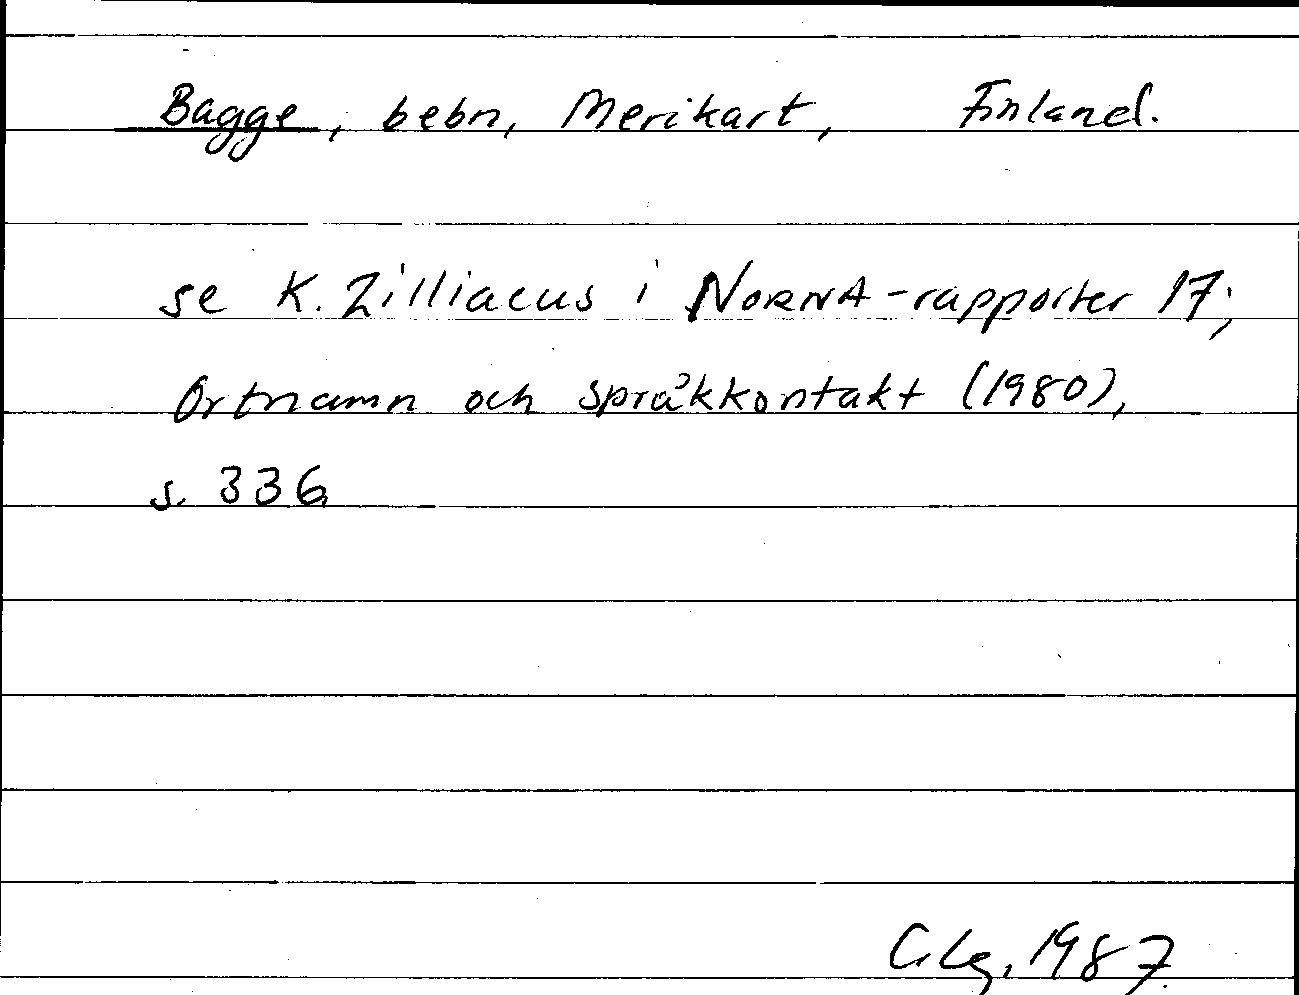 Bagge, bebn, Merikart, Finland.
se K. Zilliacus i NORNA-rapporter 17;
Ortnamn och språkkontakt (1980),
s. 336
C. Lg, 1987.